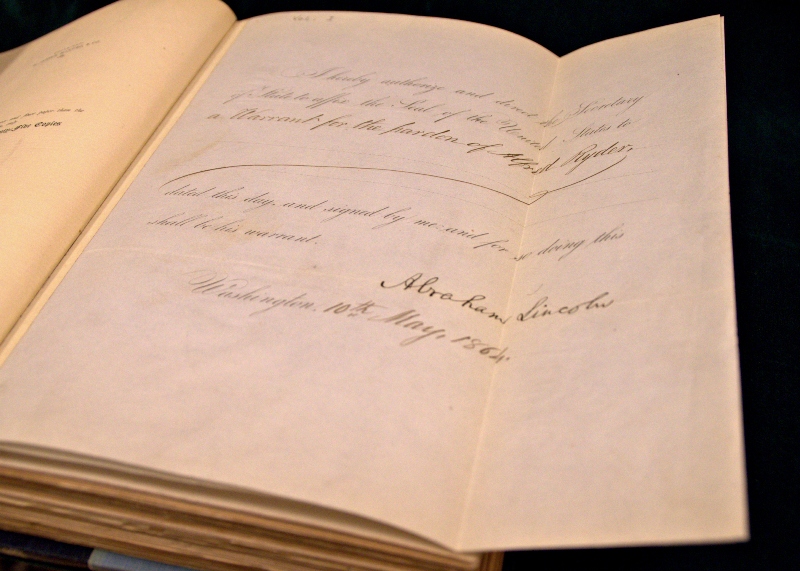 Vol. I
I hereby authorize and direct the Secretary
of State to affix the Seal of the United States to
a Warrant for the pardon of Alfred Ryder,
dated this day, and signed by me: and for so doing this
shall be his warrant.
Abraham Lincoln
Washington, 10th May, 1864.
the
Copies